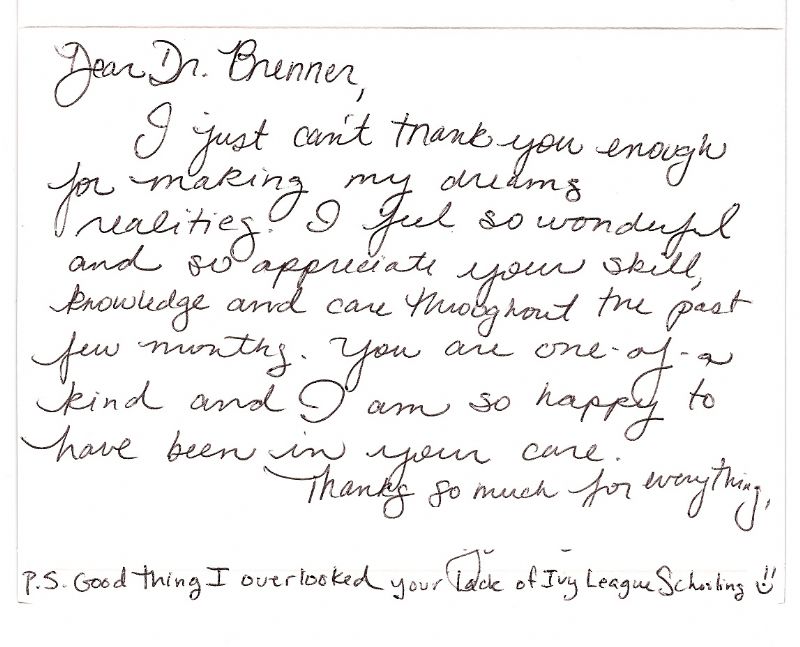 Dear Dr. Brenner,
I just can't thank you enough
for making my dreams
realities. I feel so wonderful
and so appreciate your skill,
knowledge and care throughout the past
few months. You are one-of-a
kind and I am so happy to
have been in your care.
Thanks so much for everything,
P.S. Good thing I overlooked your Lack of Ivy League Schooling